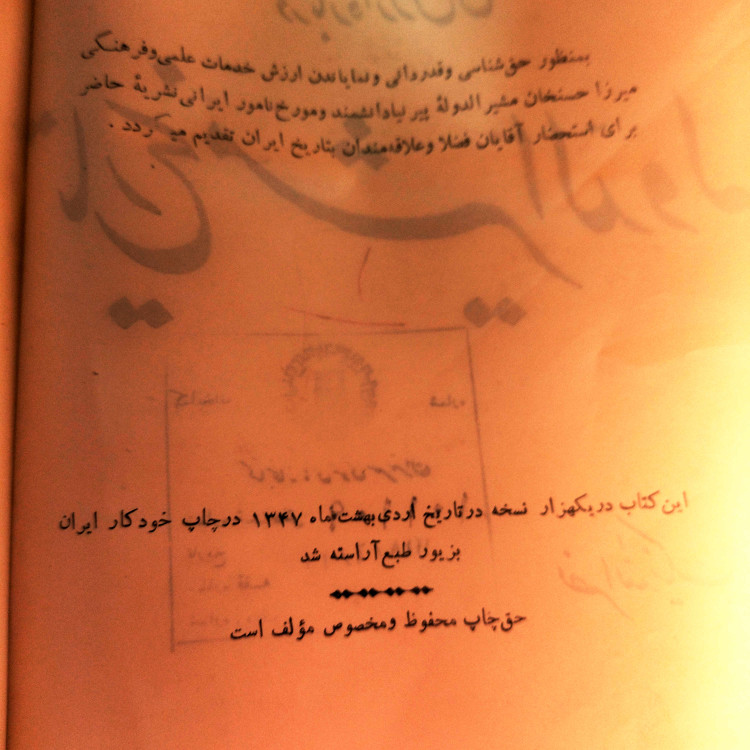 بمنظور حق‌شناسی وقدردانی ونمایاندن ارزش خدمات علمی‌وفرهنگی
میرزا حسنخان مشیرالدولهٔ پیرنیادانشمند ومورخ‌نامور ایرانی‌نشریهٔ حاضر
برای استحضار آقایان فضلا وعلاقه‌مندان بتاریخ ایران تقدیم میگردد .
این کتاب دریکهزار نسخه درتاریخ اردی‌بهشت‌ماه ۱۳۴۷ درچاپ خودکار ایران
بزیور طبع‌آراسته شد
حق‌چاپ محفوظ ومخصوص مؤلف است